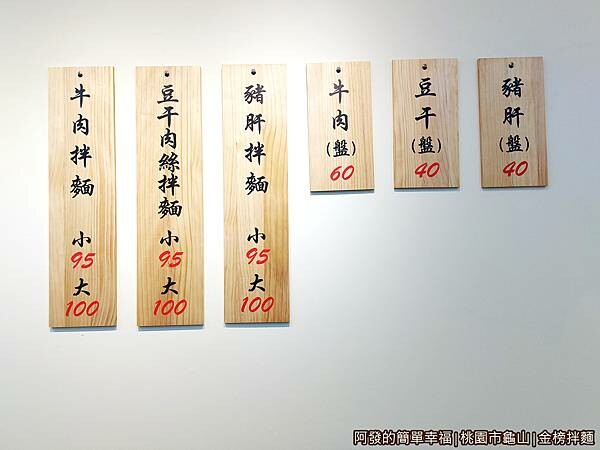 牛肉拌麵 小 95 大 100
豆干肉絲拌麵 小 95 大 100
豬肝拌麵 小 95 大 100
牛肉(盤) 60
豆干(盤) 40
豬肝(盤) 40
阿發的簡單幸福|桃園市龜山|金榜拌麵